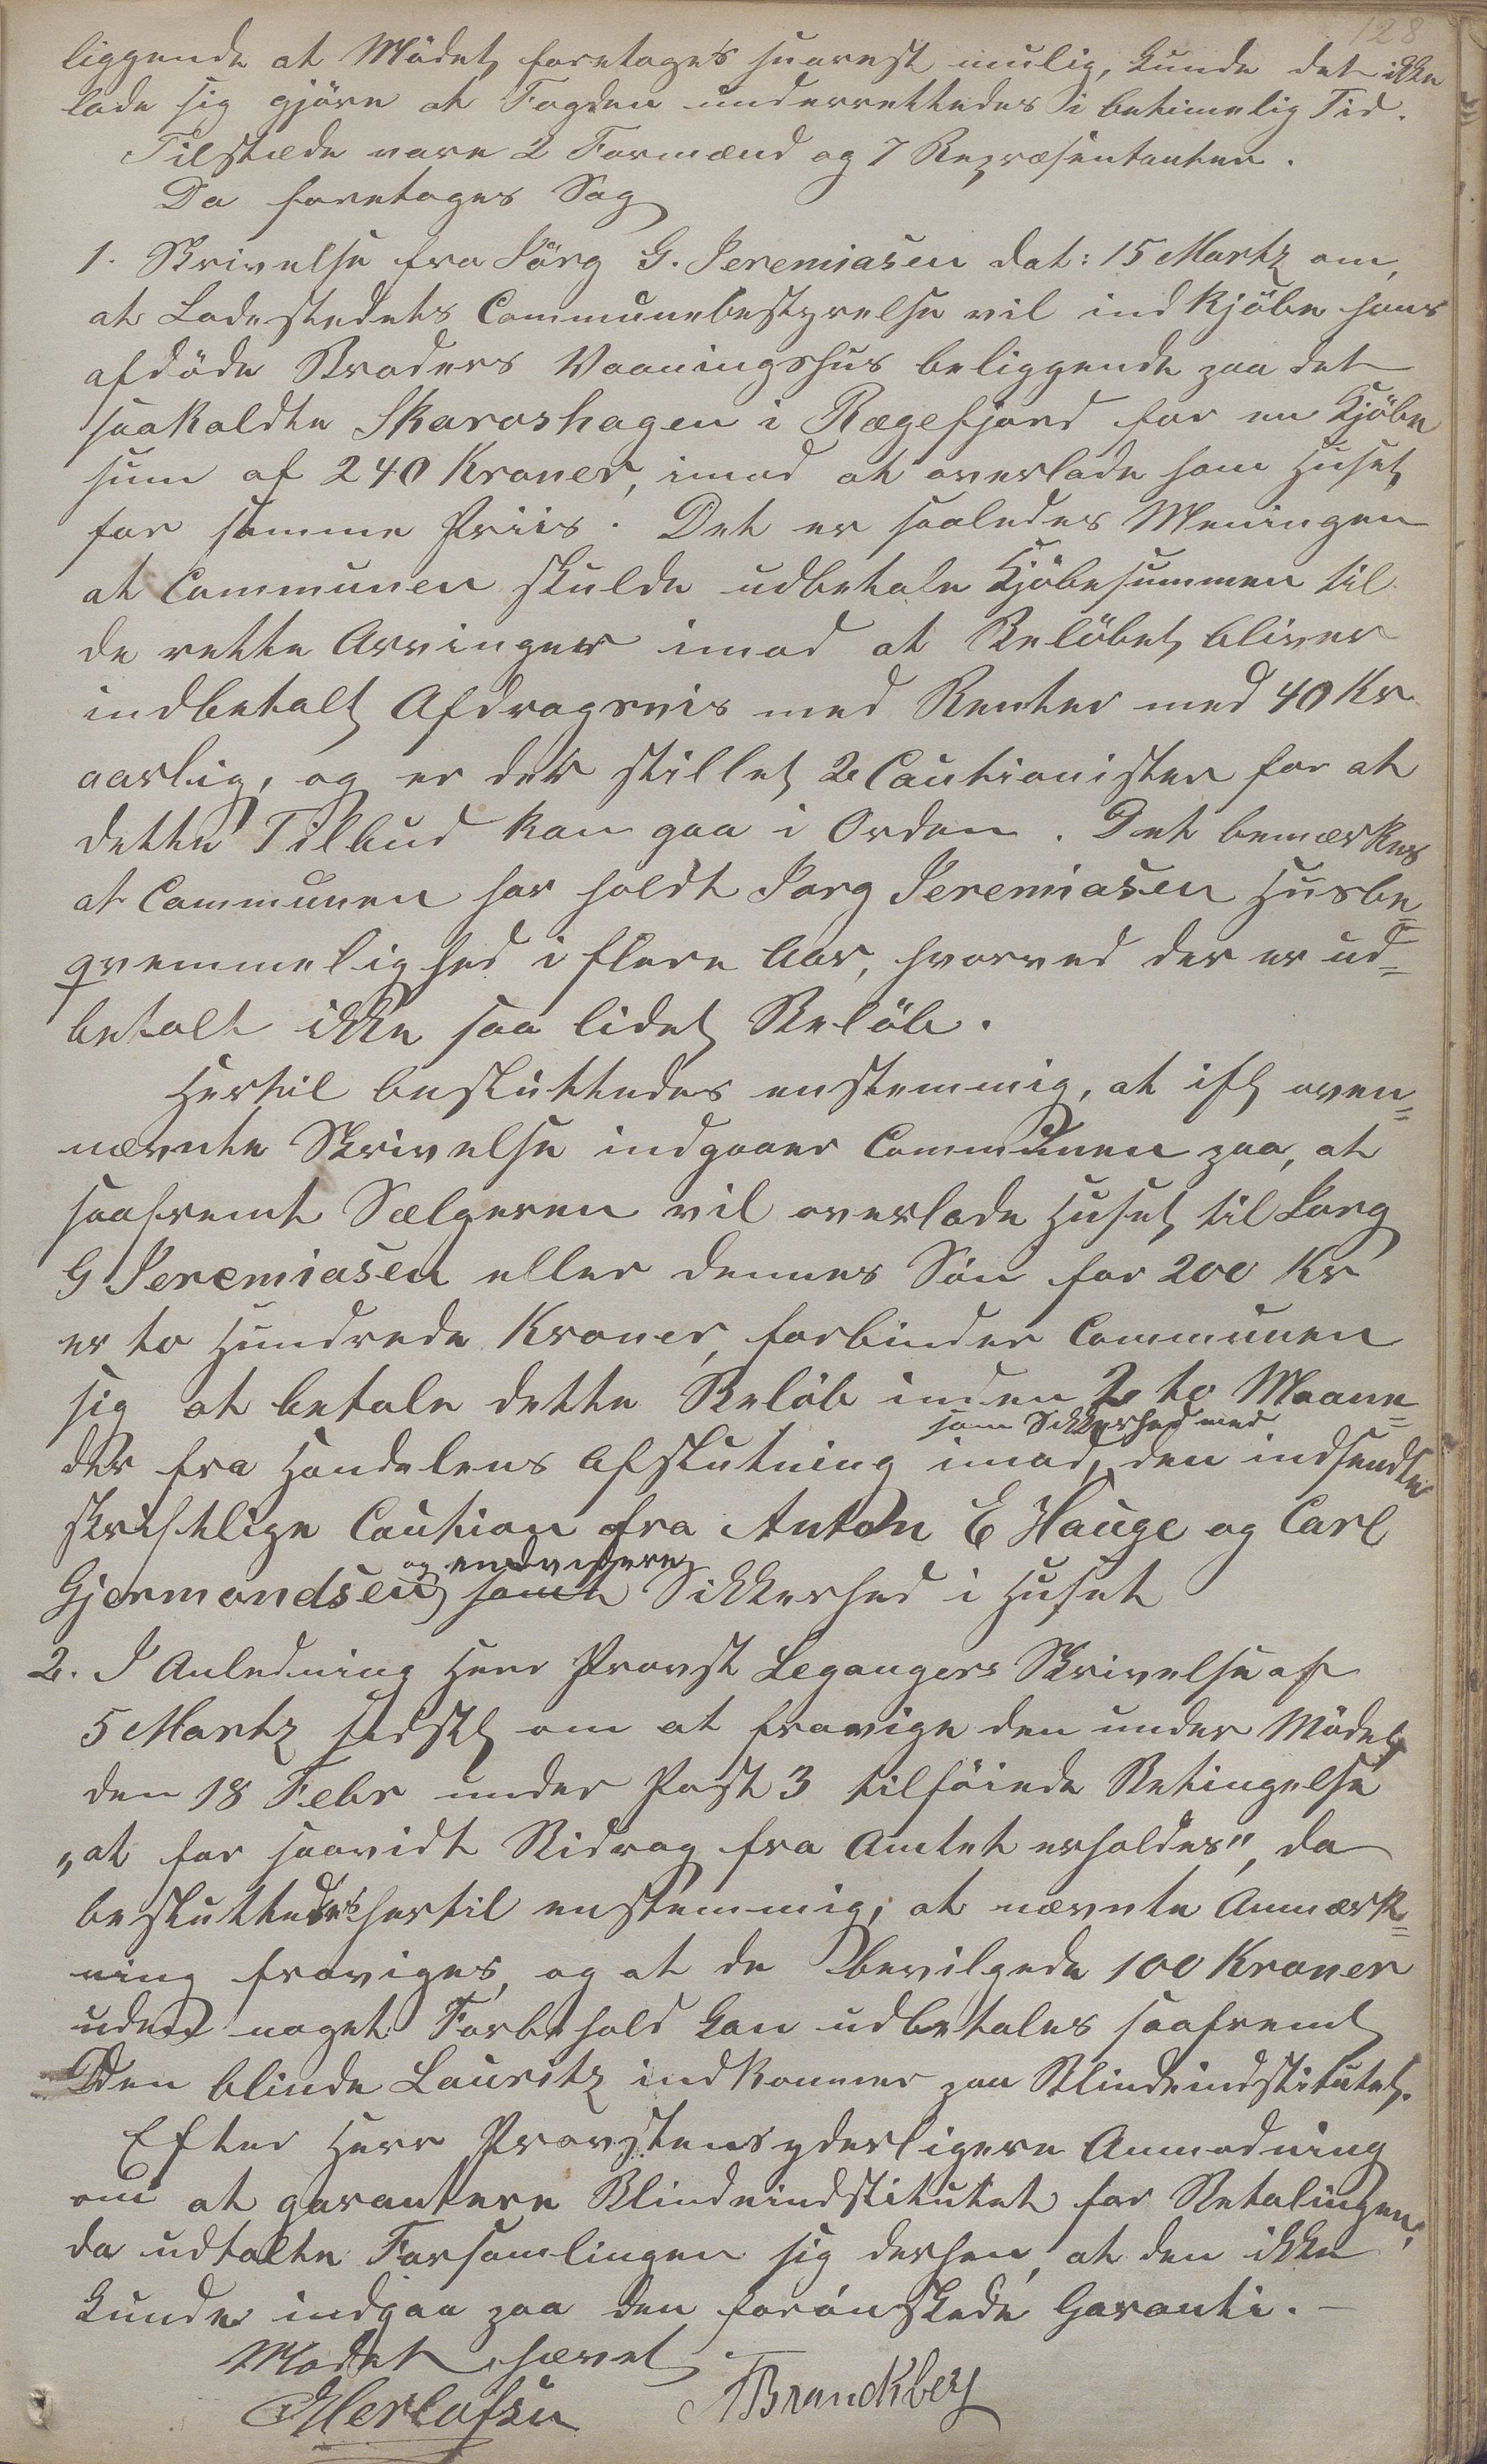 128
liggende at Mödet foretages snarest mulig, kunde det ikke
lade sig gjöre at Fogden underrettedes i betimelig Tid.
Tilstede vare 2 Formænd og 7 Repræsentanter.
Da foretoges Sag
1. Skrivelse fra Jörg G. Jeremiasen dat: 15 Martz om,
at Ladestedets Communebestyrelse vil indkjöbe hans
afdöde Broders Vaaningshus beliggende paa det
saakaldte Skaroshagen i Rægefjord for en Kjöbe
sum af 240 Kroner, imod at overlade ham Huset
for samme Priis. Det er saaledes Meningen
at Communen skulde udbetale Kjöbesummen til
de rette Arvinger imod at Belöbet bliver
indbetalt Afdragsvis med Renter med 40 Kr
aarlig, og er der stillet 2 Cautionister for at
dette Tilbud kan gaa i Orden. Det bemærkes
at Communen har holdt Jorg Jeremiasen Husbe=
qvemmelighed i flere Aar, hvorved der er ud=
betalt ikke saa lidet Belöb.
Hertil besluttedes enstemmig, at ifl oven=
nævnte Skrivelse indgaaer Communen paa, at
saafremt Sælgeren vil overlade Huset til Jorg
G Jeremiasen eller dennes Sön for 200 Kr
er to Hundrede Kroner, forbinder Communen
sig at betale dette Belöb inden 2 to Maane=
som Sikkerhed med
der fra Handelens Afslutning imod, den indsendte
skriftlige Caution fra Anton E Hauge og Carl
og endvidere
Gjermondsen samt Sikkerhed i Huset
2. I Anledning Herr Provst Legangers Skrivelse af
5 Martz sidstl om at fravige den under Mödet
den 18 Febr under Post 3 tilföiede Betingelse
„at for saavidt Bidrag fra Amtet erholdes", da
besluttedes hertil enstemmig, at nævnte Anmærk=
ning fraviges, og at de bevilgede 100 Kroner
uden noget Forbehold kan udbetales saafremt
Den blinde Lauritz indkommer paa Blindeindstitutet.
Efter Herr Provstens yderligere Anmodning
om at garantere Blindeindstitutet for Betalingen,
da udtalte Forsamlingen sig derhen, at den ikke
kunde indgaa paa den forönskede Garanti. —
Mödet hævet
Herlofsen ABrandtberg